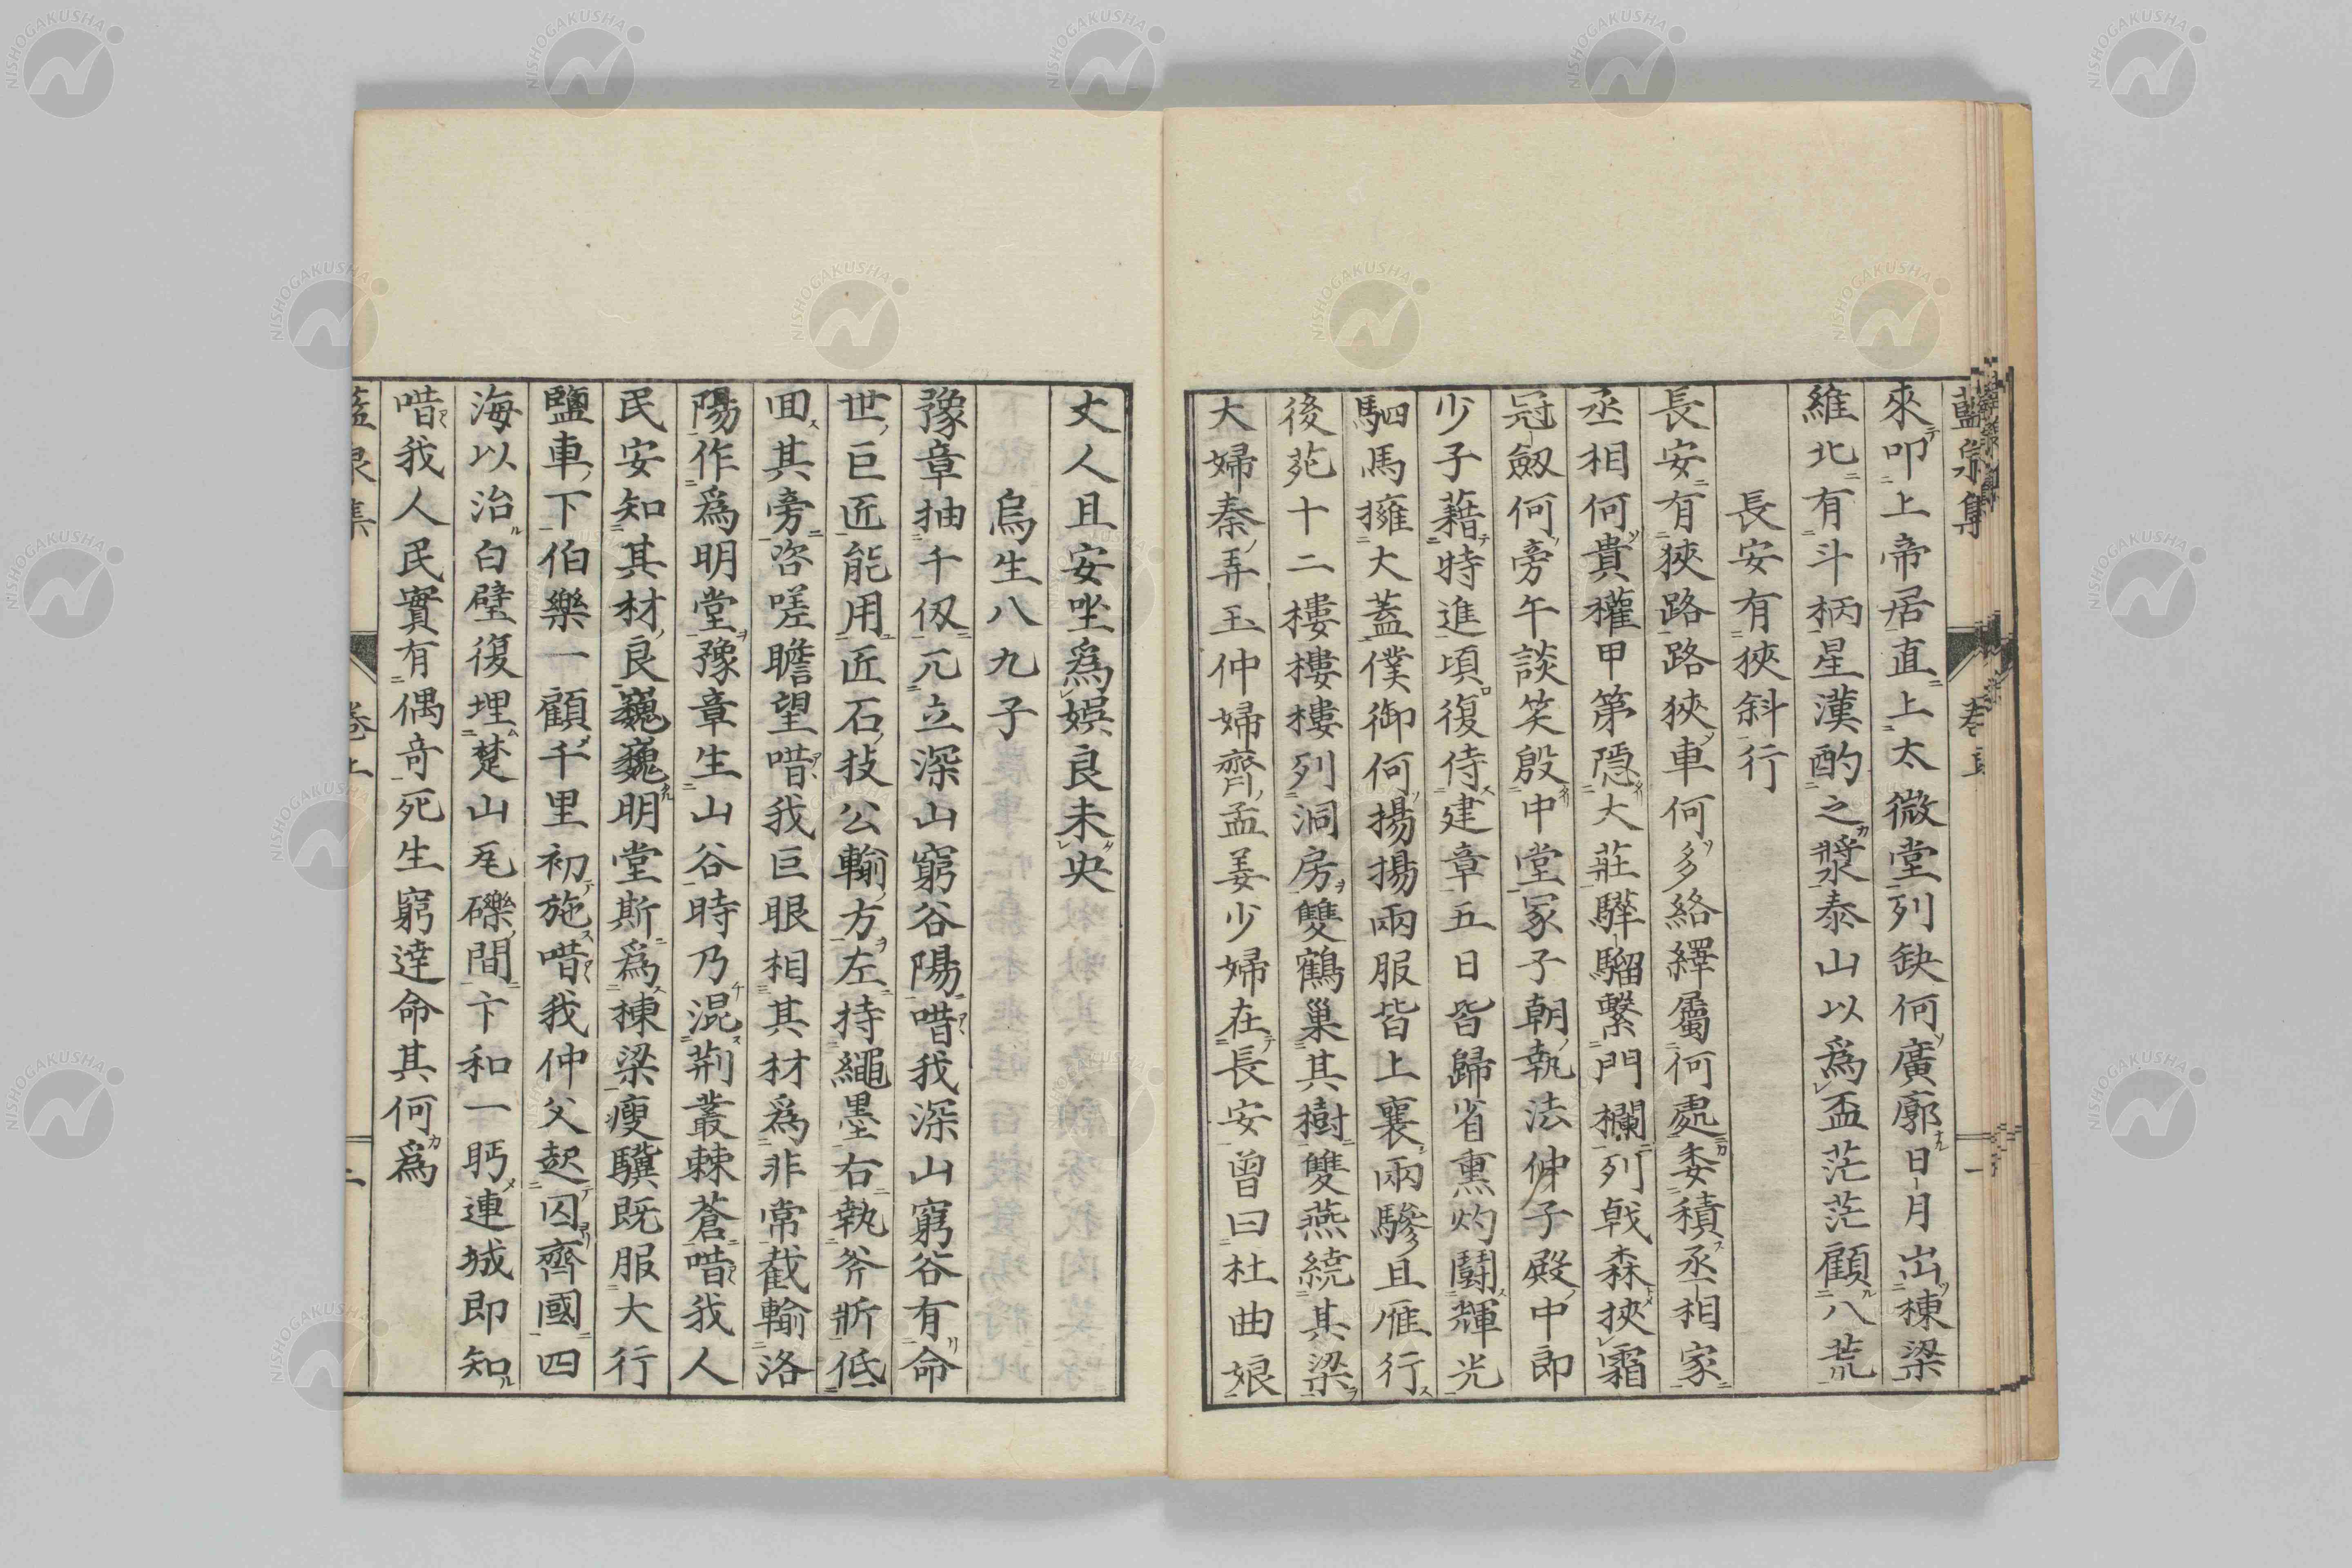 藍泉集 卷上 一
來叩上帝居直上太微堂列缺何廣廓日月出棟梁
維北有斗柄星漢酌之漿泰山以爲盃茫茫顧八荒
長安有狹斜行
長安有狹路路狹車何多絡繹屬何處委積丞相家
丞相何貴權甲第隱大莊驊騮繫門欄列戟森挾霜
冠劒何旁午談笑殷中堂冢子朝執法仲子殿中郎
少子藉特進頃復侍建章五日皆歸省熏灼鬪輝光
駟馬擁大蓋僕御何揚揚兩服皆上襄兩驂且雁行
後苑十二樓樓樓列洞房雙鶴巢其樹雙燕繞其梁
大婦秦弄玉仲婦齊孟姜少婦在長安曾曰杜曲娘
丈人且安坐爲娯良未央
烏生八九子
豫章抽千仭兀立深山窮谷陽唶我深山窮谷有命
世巨匠能用匠石技公輸方左持繩墨右執斧斨低
囬其旁咨嗟瞻望唶我巨眼相其材爲非常截輸洛
陽作爲明堂豫章生山谷時乃混荆叢棘蒼唶我人
民安知其材良巍巍明堂斯爲棟梁瘦驥既服大行
鹽車下伯樂一顧千里初施唶我仲父起囚齊國四
海以治白璧復埋楚山死礫間卞和一眄連城即知
唶我人民實有偶奇死生窮達命其何爲
藍泉集 卷上 二